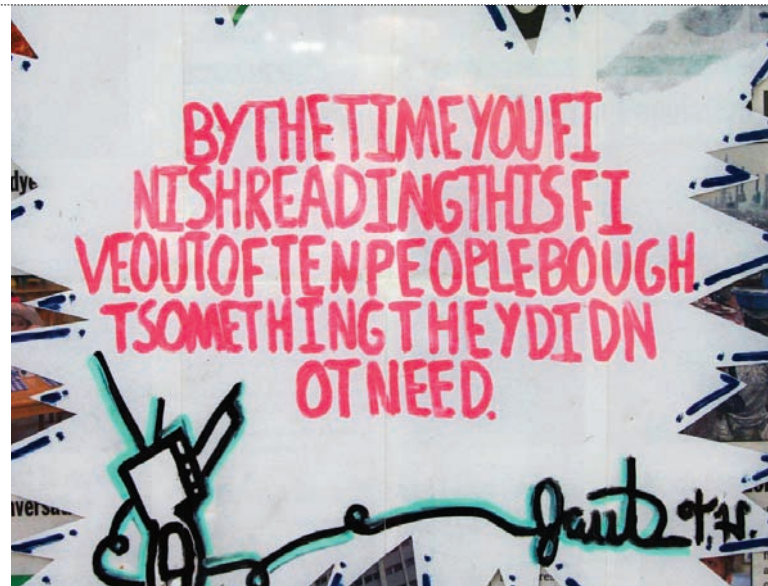 BYTHETIMEYOUFI
NISHREADINGTHISFI
VEOUTOFTENPEOPLEBOUGH
TSOMETHINGTHEYDIDN
OTNEED.